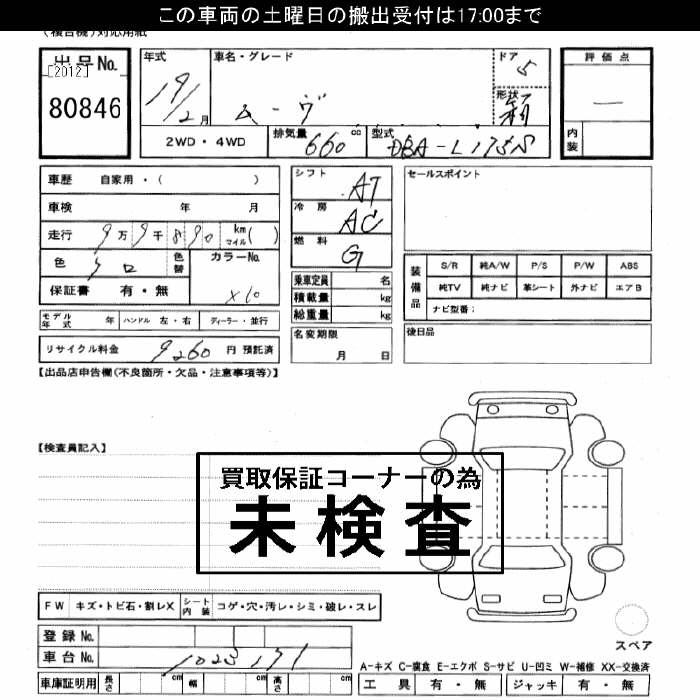 この車両の土曜日の搬出受付は17:00まで
(複合機)対応用紙
出品No.
[2012]
80846
年式
19/2月
車名・グレード
ムーヴ
ドア
5
形状
箱
評価点
—
内装
2WD・4WD
排気量 660 cc
型式 DBA-L175S
車歴 自家用・( )
車検 年 月
走行 9万9千890 km マイル( )
色 シロ
色替
カラーNo.
X10
保証書 有・無
シフト AT
冷房 AC
燃料 G
セールスポイント
乗車定員 名
積載量 kg
総重量 kg
装備品
S/R 純A/W P/S P/W ABS
純TV 純ナビ 革シート 外ナビ エアB
ナビ型番:
モデル年式 年 ハンドル 左・右 ディーラー・並行
名変期限
月 日
後日品
リサイクル料金 9260 円 預託済
【出品店申告欄(不良箇所・欠品・注意事項等)】
【検査員記入】
買取保証コーナーの為
未検査
FW キズ・トビ石・割レX シート内装 コゲ・穴・汚レ・シミ・破レ・スレ
スペア
登録No.
車台No. 1023171
A-キズ C-腐食 E-エクボ S-サビ U-凹ミ W-補修 XX-交換済
車庫証明用 長さ cm 幅 cm 高さ cm
工具 有・無 ジャッキ 有・無